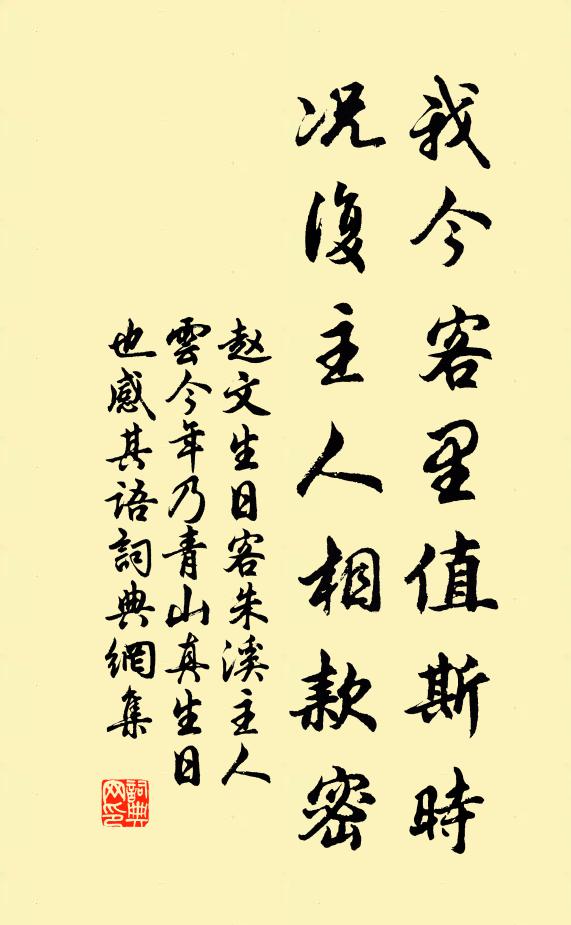 我今客里值斯時
况復主人相款密
赵文生日客朱溪主人
雲今年乃青山真生日
也感其语詞典網集
詞典网印